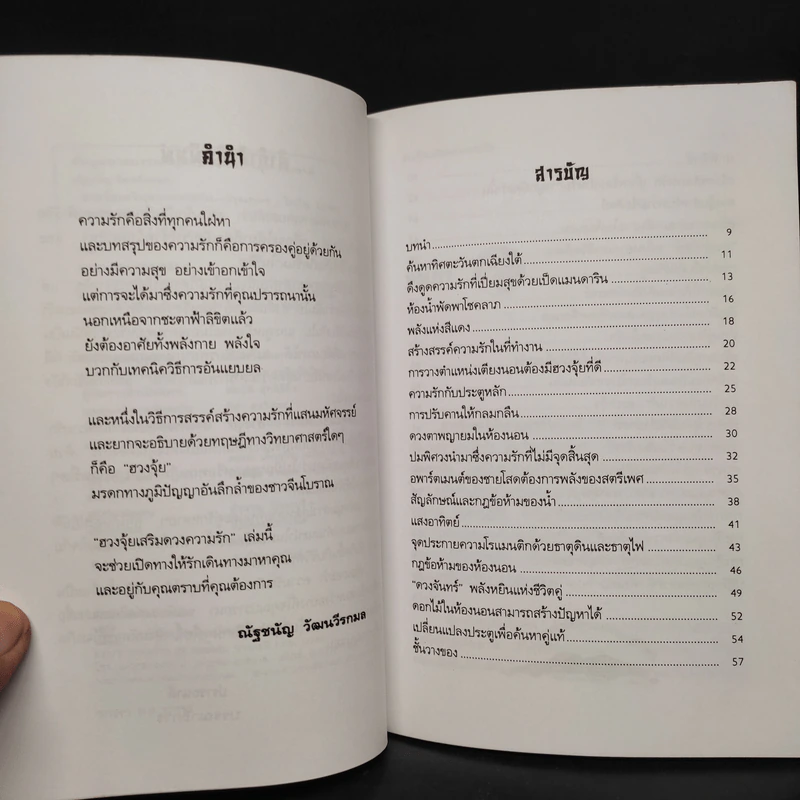 คำนำ
ความรักคือสิ่งที่ทุกคนใฝ่หา
และบทสรุปของความรักก็คือการครองคู่อยู่ด้วยกัน
อย่างมีความสุข อย่างเข้าอกเข้าใจ
แต่การจะได้มาซึ่งความรักที่คุณปรารถนานั้น
นอกเหนือจากชะตาฟ้าลิขิตแล้ว
ยังต้องอาศัยทั้งพลังกาย พลังใจ
บวกกับเทคนิควิธีการอันแยบยล
และหนึ่งในวิธีการสรรค์สร้างความรักที่แสนมหัศจรรย์
และยากจะอธิบายด้วยทฤษฎีทางวิทยาศาสตร์ใดๆ
ก็คือ "ฮวงจุ้ย"
มรดกทางภูมิปัญญาอันลึกล้ำของชาวจีนโบราณ
"ฮวงจุ้ยเสริมดวงความรัก" เล่มนี้
จะช่วยเปิดทางให้รักเดินทางมาหาคุณ
และอยู่กับคุณตราบที่คุณต้องการ
ณัฐชนัญ วัฒนวีรกมล
สารบัญ
บทนำ 9
ค้นหาทิศตะวันตกเฉียงใต้ 11
ดึงดูดความรักที่เปี่ยมสุขด้วยเป็ดแมนดาริน 13
ห้องน้ำพัดพาโชคลาภ 16
พลังแห่งสีแดง 18
สร้างสรรค์ความรักในที่ทำงาน 20
การวางตำแหน่งเตียงนอนต้องมีฮวงจุ้ยที่ดี 22
ความรักกับประตูหลัก 25
การปรับคานให้กลมกลืน 28
ดวงตาพญายมในห้องนอน 30
ปมพิศวงนำมาซึ่งความรักที่ไม่มีจุดสิ้นสุด 32
อพาร์ตเมนต์ของชายโสดต้องการพลังของสตรีเพศ 35
สัญลักษณ์และกฎข้อห้ามของน้ำ 38
แสงอาทิตย์ 41
จุดประกายความโรแมนติกด้วยธาตุดินและธาตุไฟ 43
กฎข้อห้ามของห้องนอน 46
"ดวงจันทร์" พลังหยินแห่งชีวิตคู่ 49
ดอกไม้ในห้องนอนสามารถสร้างปัญหาได้ 52
เปลี่ยนแปลงประตูเพื่อค้นหาคู่แท้ 54
ชั้นวางของ 57